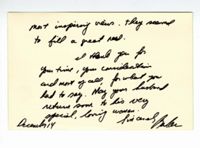 most inspiring views. They seemed
to fill a great need.
I thank you for
your time, your consideration
and most of all, for what you
had to say. May your husband
return soon to his very
special, loving woman.
Sincerely
December 14